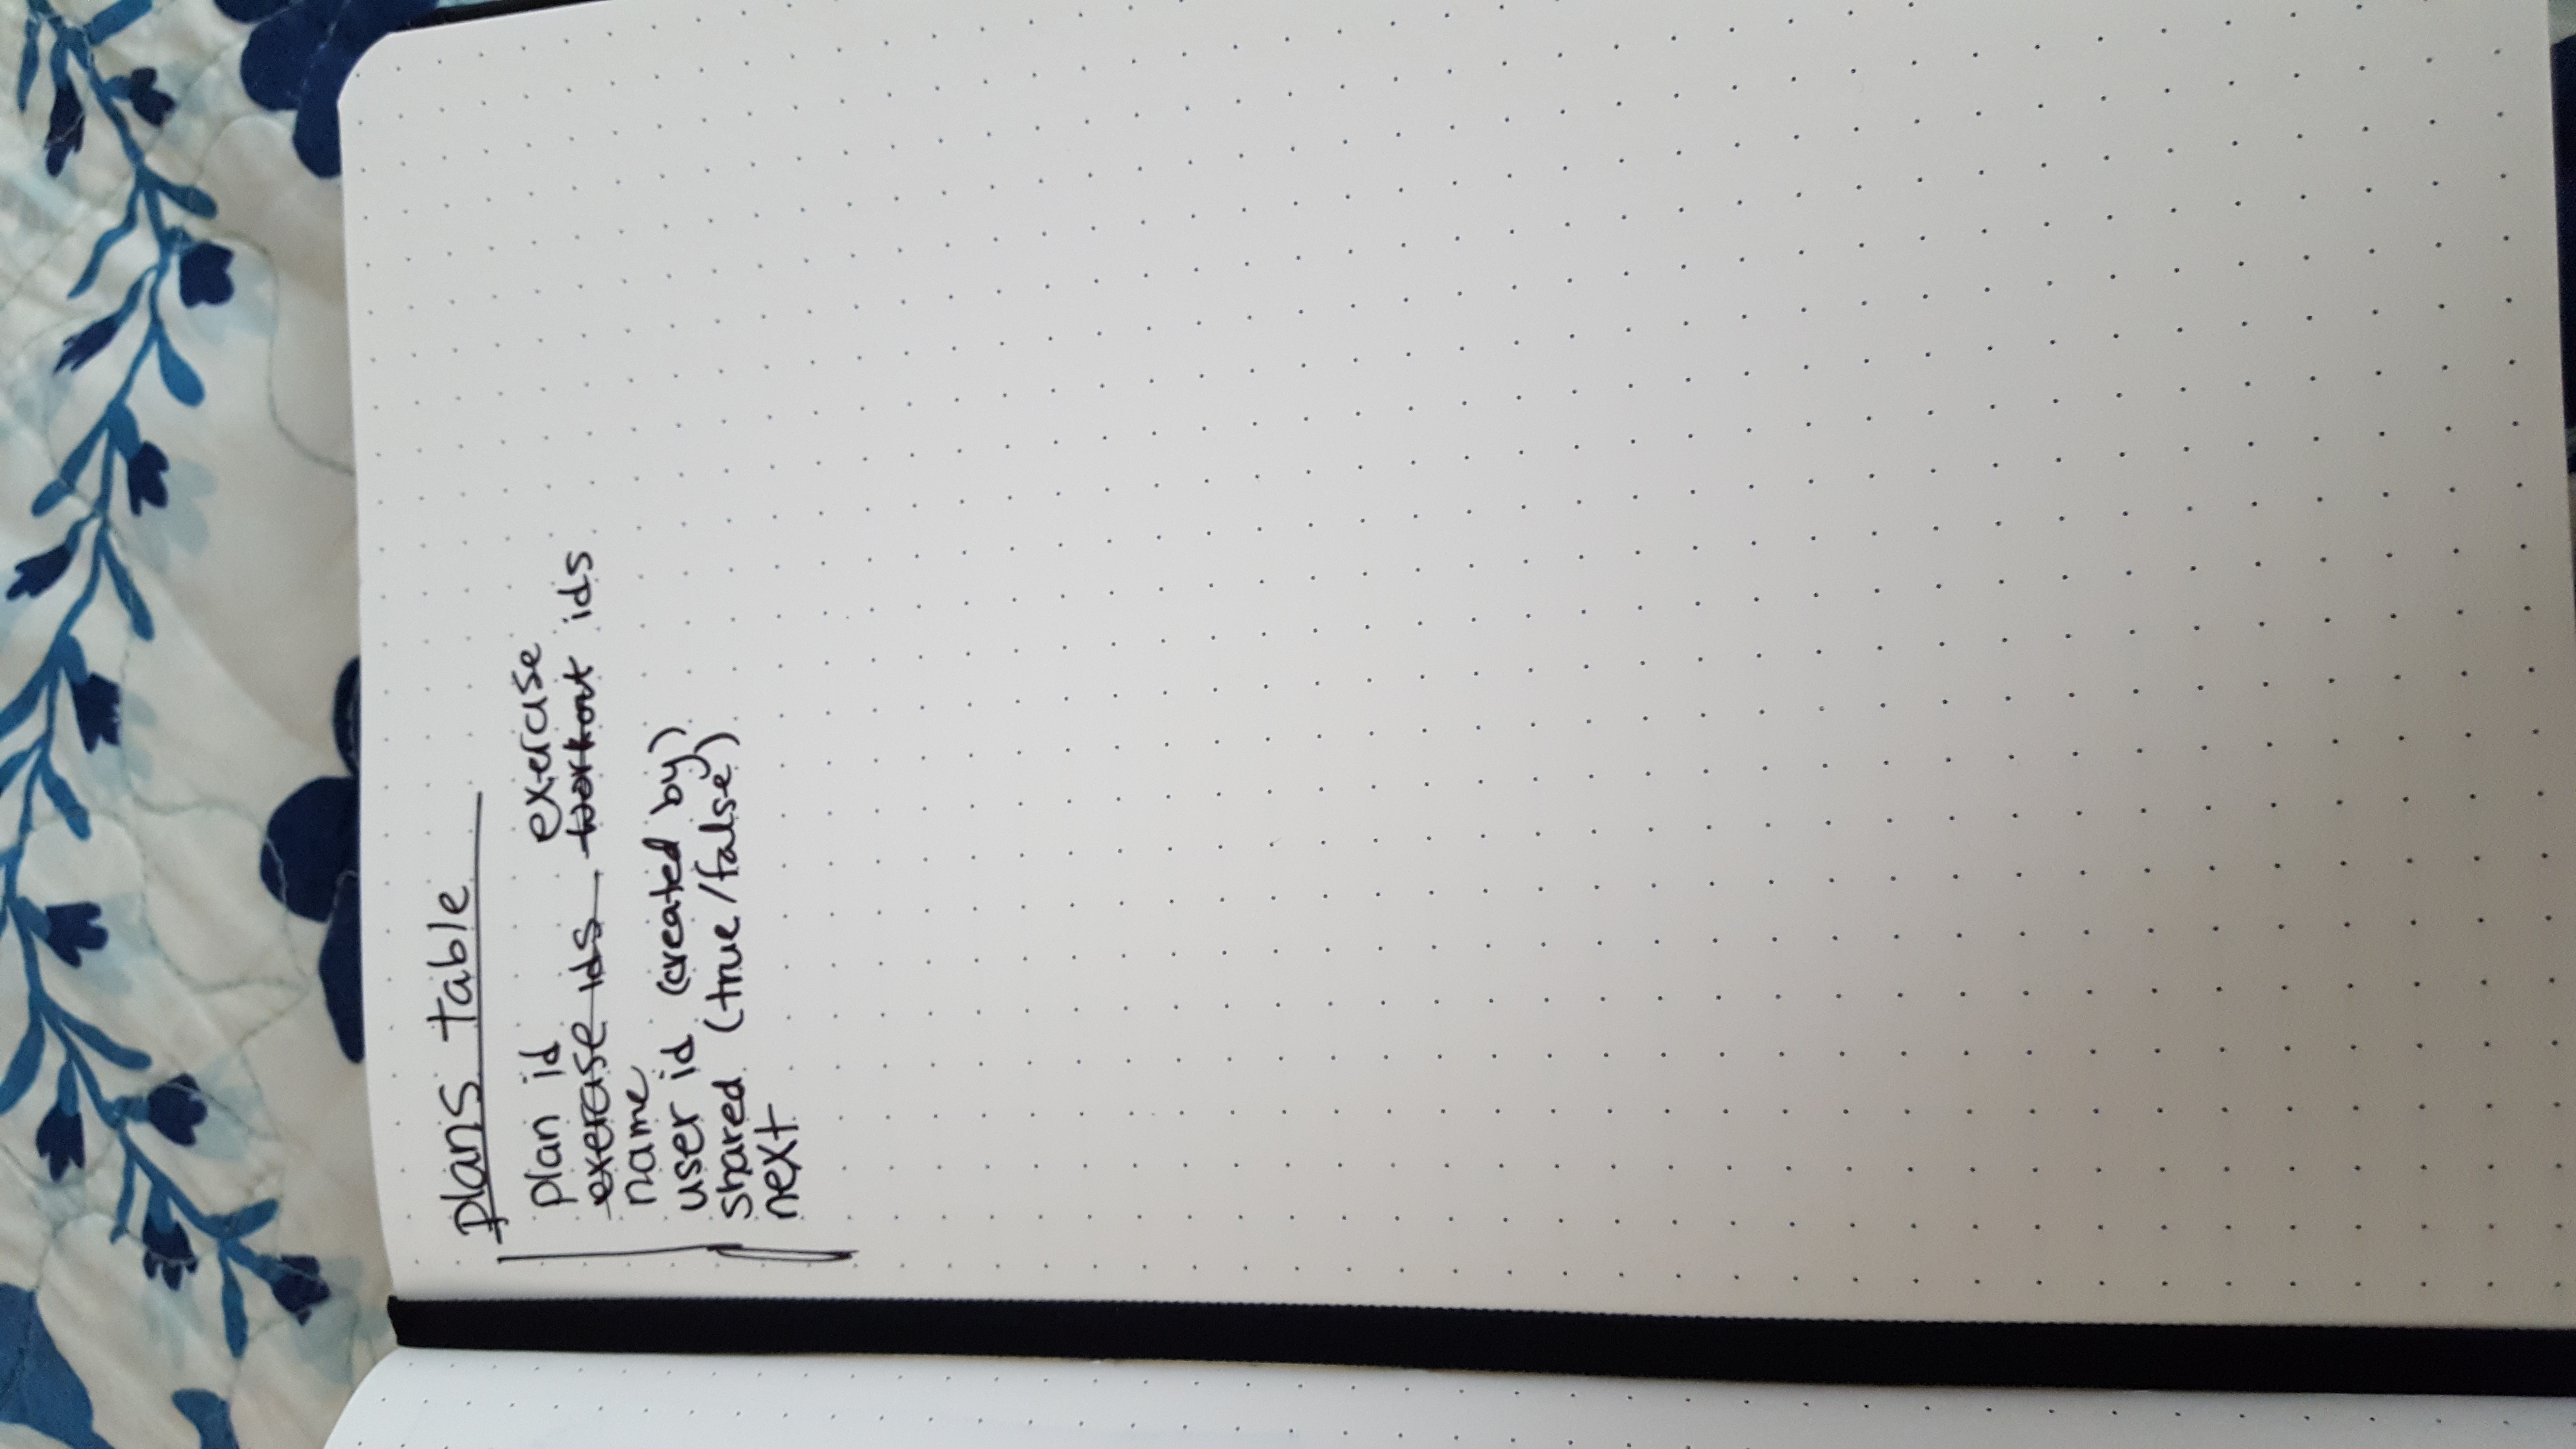 plans table
plan id
exercise
exercise ids workout ids
name
user id (created by)
shared (true/false)
next